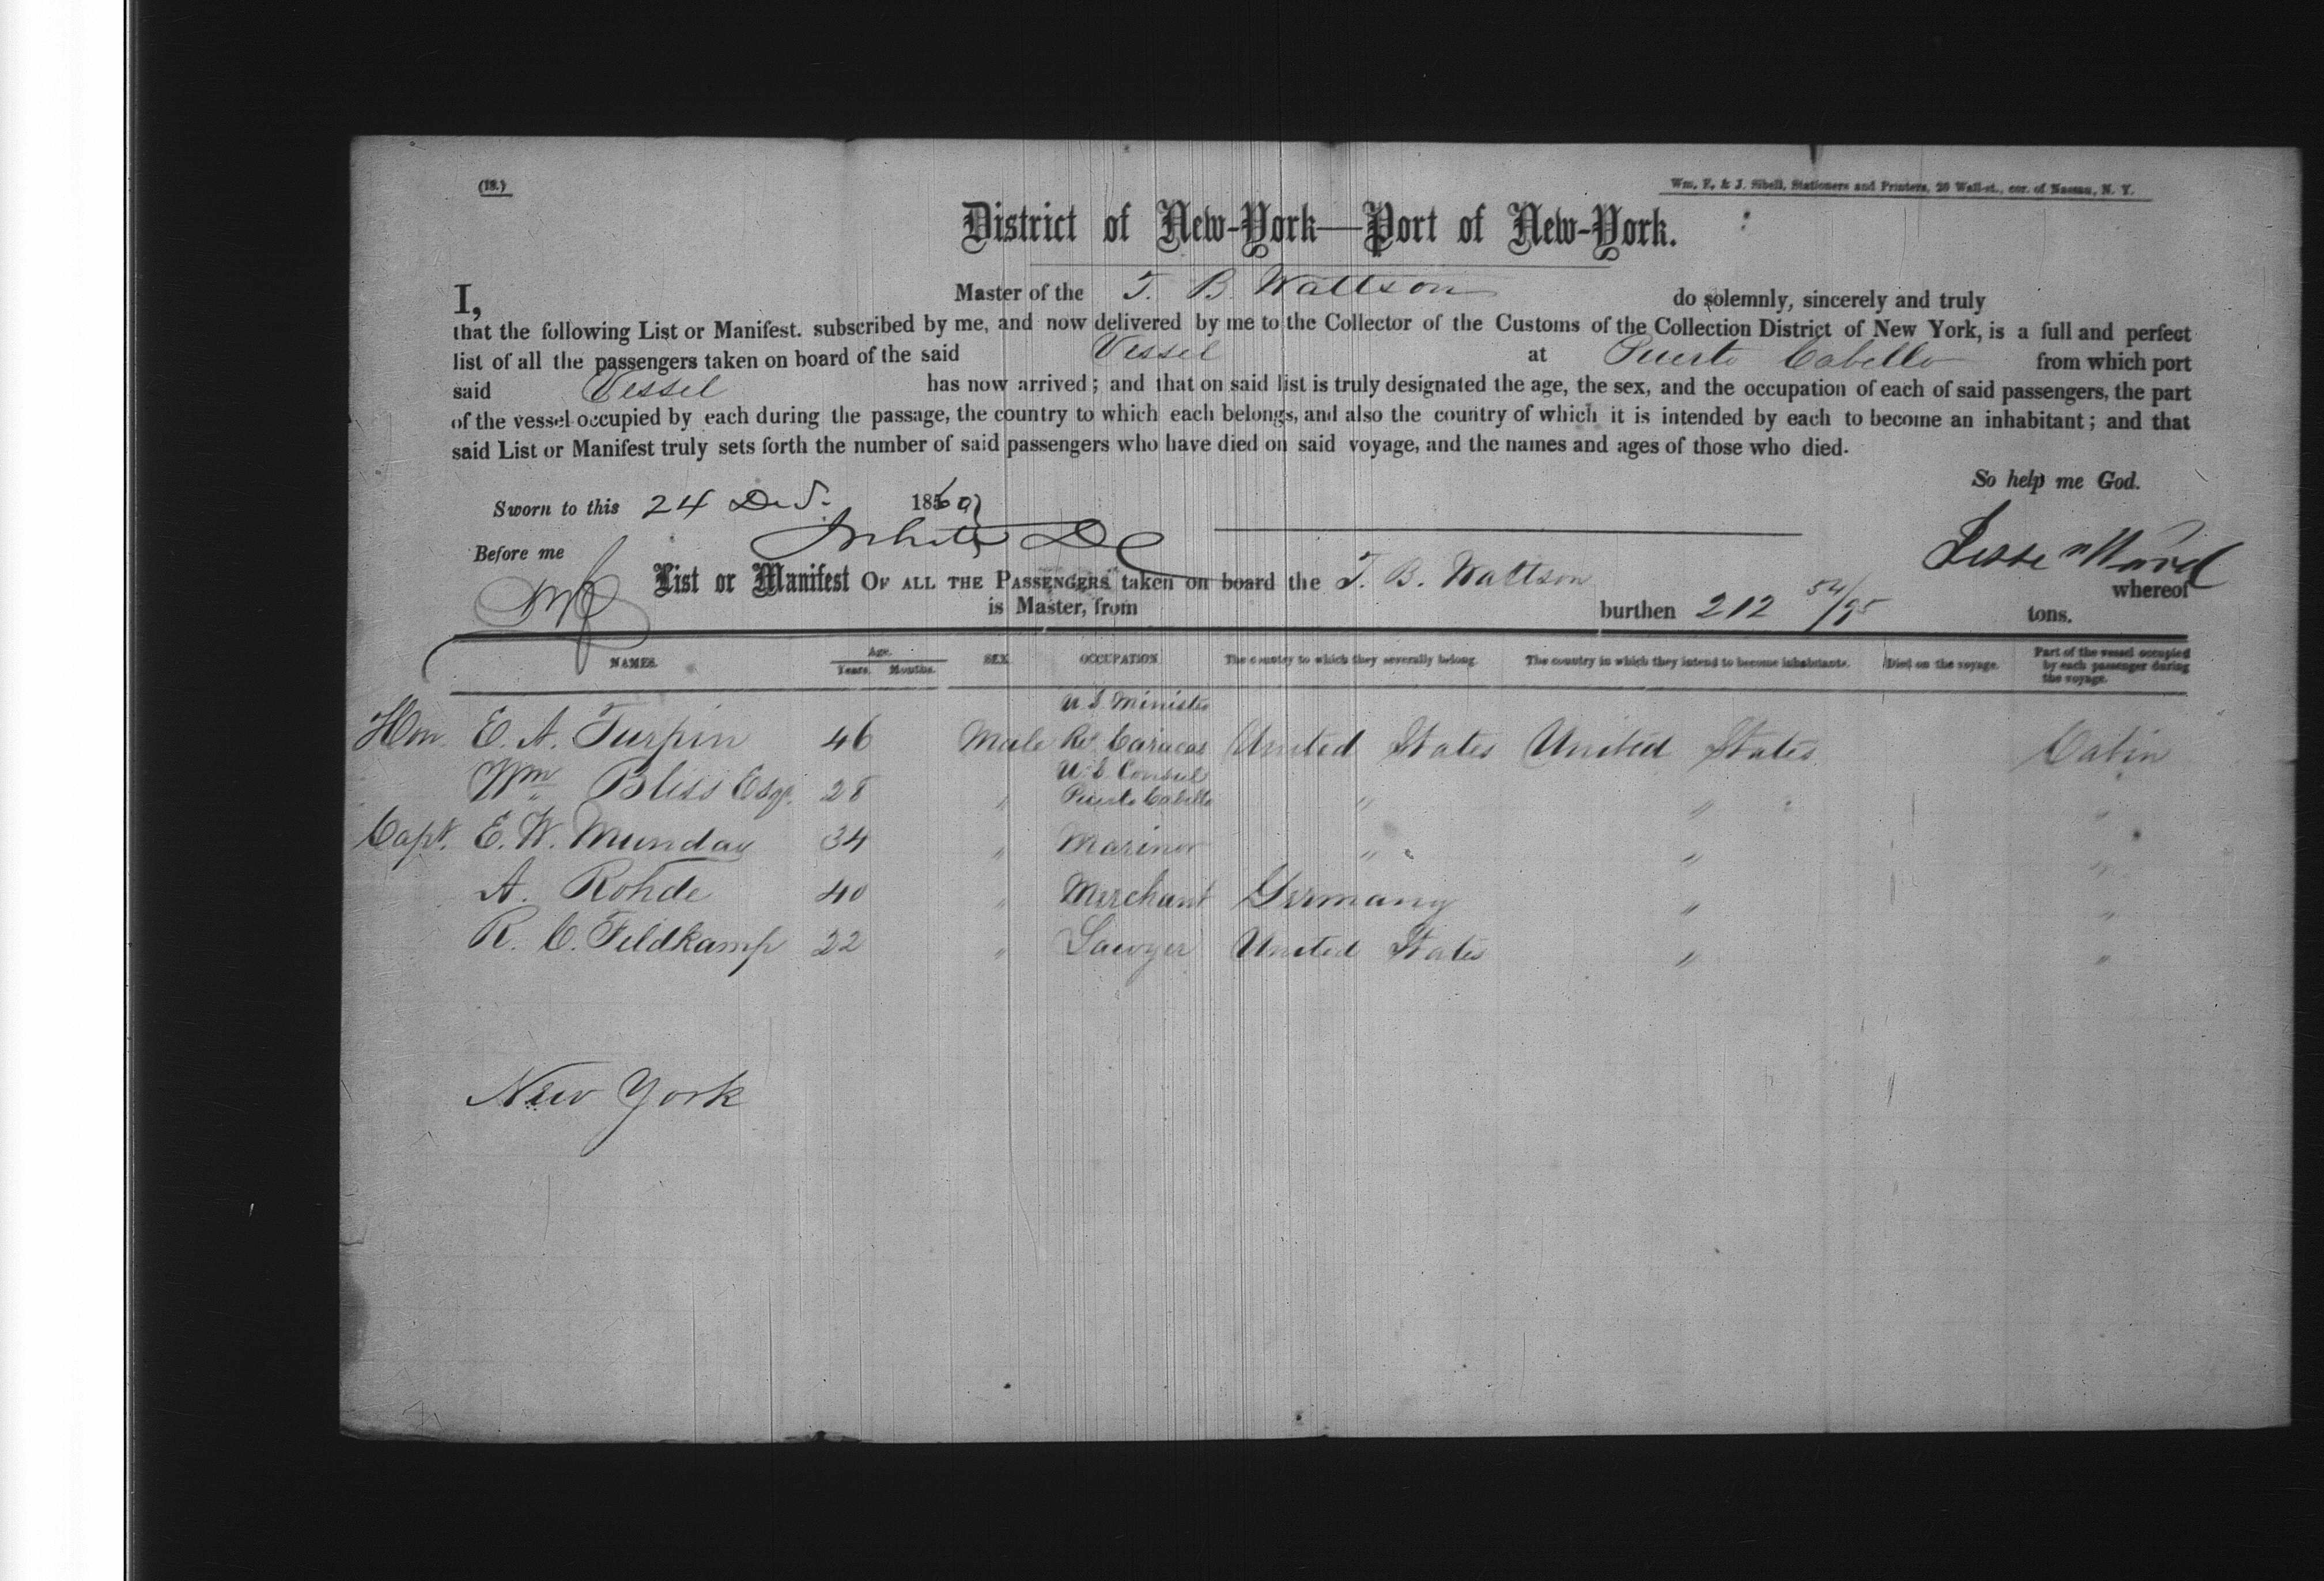 (18.)
Wm. F. & J. Sibell, Stationers and Printers, 20 Wall-st., cor. of Nassau, N. Y.
District of New-York—Port of New-York.
I, Master of the T. B. Wattson do solemnly, sincerely and truly
that the following List or Manifest. subscribed by me, and now delivered by me to the Collector of the Customs of the Collection District of New York, is a full and perfect
list of all the passengers taken on board of the said Vessel at Puerto Cabello from which port
said Vessel has now arrived; and that on said list is truly designated the age, the sex, and the occupation of each of said passengers, the part
of the vessel occupied by each during the passage, the country to which each belongs, and also the country of which it is intended by each to become an inhabitant; and that
said List or Manifest truly sets forth the number of said passengers who have died on said voyage, and the names and ages of those who died.
So help me God.
Sworn to this 24 1860
Before me
Jesse Ward
List or Manifest OF ALL THE PASSENGERS taken on board the T. B. Wattson whereof
is Master, from burthen 212 54/95 tons.
NAMES. Age. Years. Months. SEX OCCUPATION The country to which they severally belong. The country in which they intend to become inhabitants. Died on the voyage. Part of the vessel occupied by each passenger during the voyage.
U. S. Minister
Hon. E. A. Turpin 46 Male Caracas United States United States Cabin
U. S. Consul
Wm Bliss Esqr. 28 " Puerto Cabello " " "
Capt. E. W. Munday 34 " Marinor " " "
A. Rohde 40 " Merchant Germany " "
R. C. Feldkamp 22 " Lawyer United States " "
New York